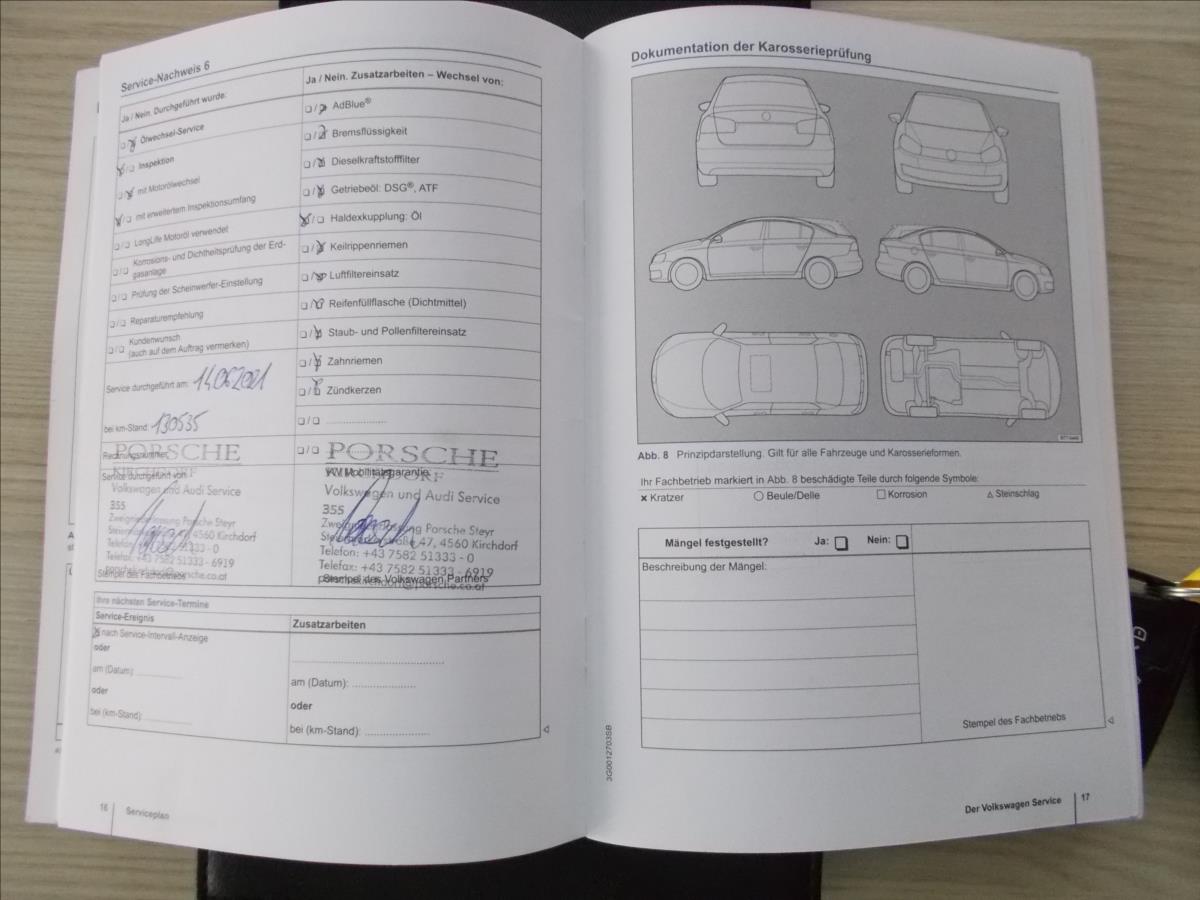 Service-Nachweis 6
Ja / Nein. Durchgeführt wurde:
Ölwechsel-Service
Inspektion
mit Motorölwechsel
mit erweitertem Inspektionsumfang
LongLife Motoröl verwendet
Korrosions- und Dichtheitsprüfung der Erd-
gasanlage
Prüfung der Scheinwerfer-Einstellung
Reparaturempfehlung
Kundenwunsch
(auch auf dem Auftrag vermerken)
Service durchgeführt am: 14.06.2021
bei km-Stand: 130535
Rechnungsnummer:
PORSCHE
KIRCHDORF
Service durchgeführt von:
Volkswagen und Audi Service
355
Zweigniederlassung Porsche Steyr
4560 Kirchdorf
Telefon: +43 7582 51333 - 0
Telefax: +43 7582 51333 - 6919
Stempel des Fachbetriebs
Ja / Nein. Zusatzarbeiten – Wechsel von:
AdBlue®
Bremsflüssigkeit
Dieselkraftstofffilter
Getriebeöl: DSG®, ATF
Haldexkupplung: Öl
Keilrippenriemen
Luftfiltereinsatz
Reifenfüllflasche (Dichtmittel)
Staub- und Pollenfiltereinsatz
Zahnriemen
Zündkerzen
PORSCHE
VW Mobilitätsgarantie:
Volkswagen und Audi Service
355
Porsche Steyr
47, 4560 Kirchdorf
Telefon: +43 7582 51333 - 0
Telefax: +43 7582 51333 - 6919
Stempel des Volkswagen Partners
Ihre nächsten Service-Termine
Service-Ereignis
nach Service-Intervall-Anzeige
oder
am (Datum):
oder
bei (km-Stand):
Zusatzarbeiten
am (Datum):
oder
bei (km-Stand):
16
Serviceplan
Dokumentation der Karosserieprüfung
Abb. 8 Prinzipdarstellung. Gilt für alle Fahrzeuge und Karosserieformen.
Ihr Fachbetrieb markiert in Abb. 8 beschädigte Teile durch folgende Symbole:
Kratzer
Beule/Delle
Korrosion
Steinschlag
Mängel festgestellt? Ja: Nein:
Beschreibung der Mängel:
Stempel des Fachbetriebs
3G0012703SB
Der Volkswagen Service
17